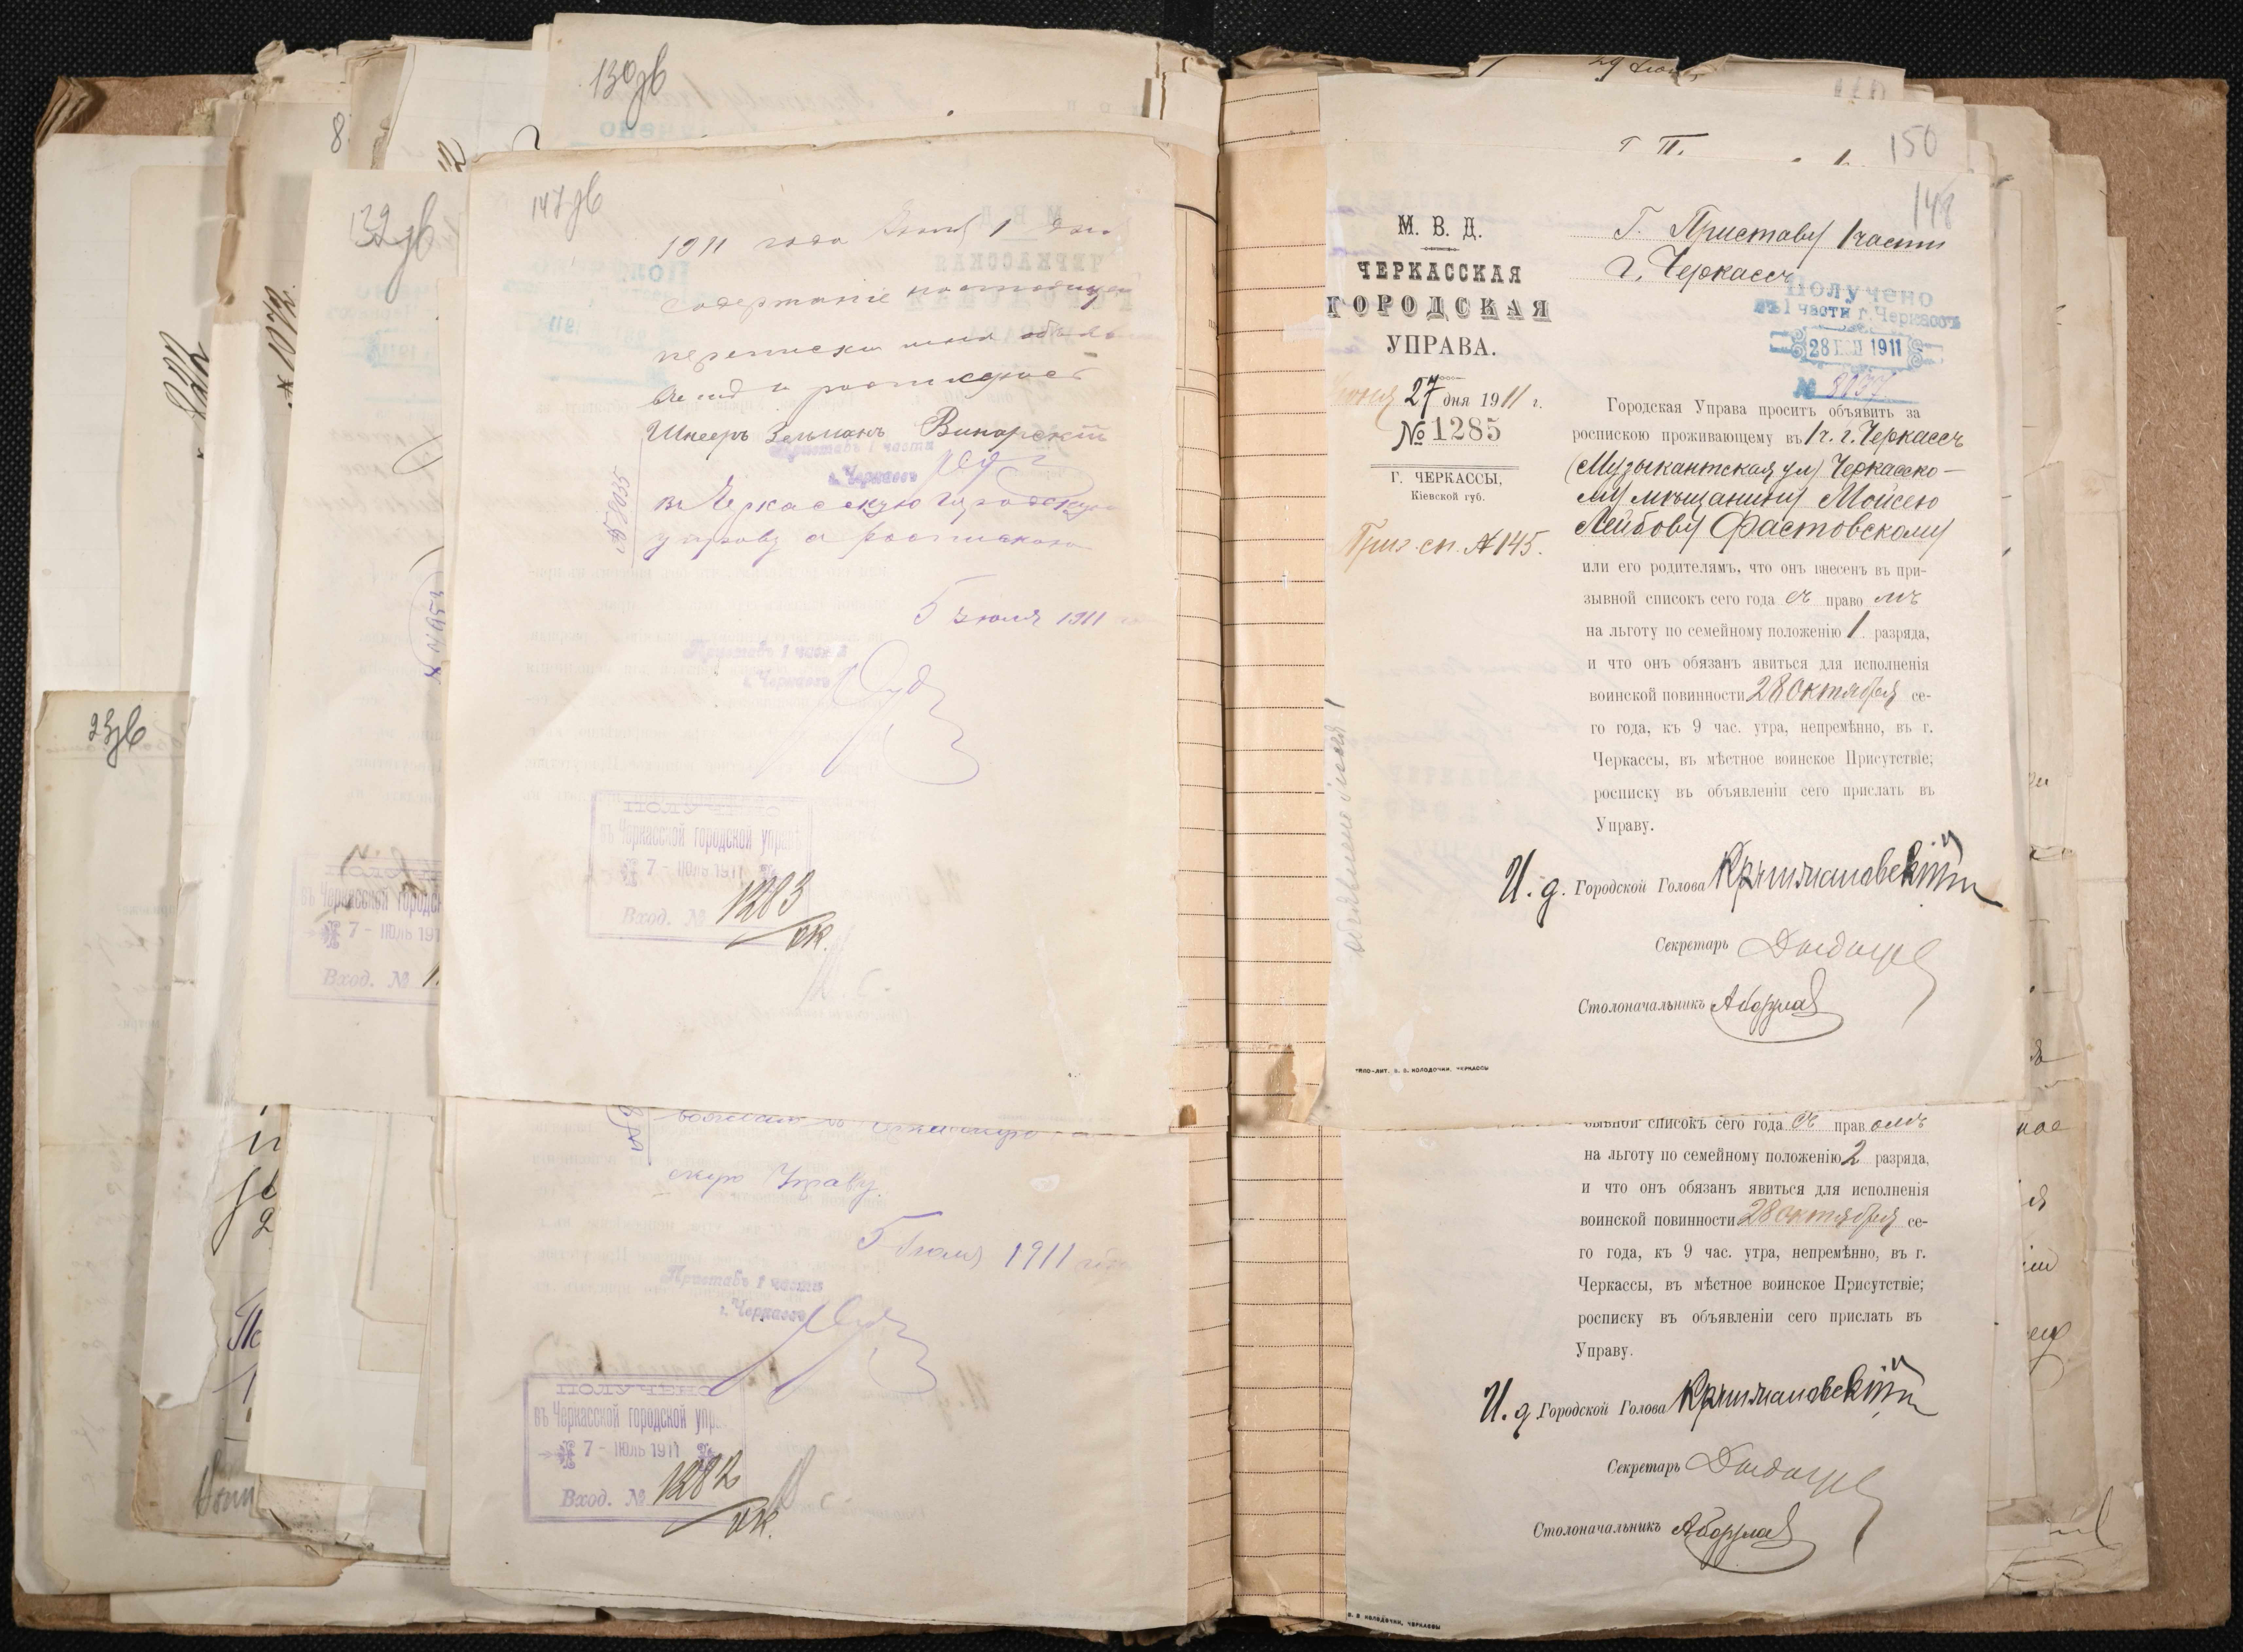 130об
8
132об
23об
147об
1911 года Июля 1 дня
содержаніе настоящей
переписки мнѣ объявлено
въ чемъ и росписуюсь
Шнееръ Зельманъ Винарскій
Приставъ 1 части
г. Черкассъ
№ 8035
Въ Черкасскую Городскую
управу съ роспискою
5 июля 1911
Приставъ 1 части
г. Черкассъ
ПОЛУЧЕНО
въ Черкасской городской управѣ
7 - ІЮЛЬ 1911
Вход. № 1283
ПОЛУЧЕНО
въ Черкасской городск
7 - ІЮЛЬ 191
Вход. № 1.
скую Управу.
5 Июля 1911
Приставъ 1 части
г. Черкассъ
ПОЛУЧЕНО
въ Черкасской городской упр
7 - ІЮЛЬ 1911
Вход. № 1282
150
148
М. В. Д.
ЧЕРКАССКАЯ
ГОРОДСКАЯ
УПРАВА.
Июня 27 дня 1911 г.
№ 1285
Г. ЧЕРКАССЫ,
Кіевской губ.
Приз. сп. № 145.
Г. Приставу 1 части
г. Черкассъ
Получено
въ 1 части г. Черкассъ
28 1911
№ 8037
Городская Управа проситъ объявить за
роспискою проживающему въ 1 ч. г. Черкассъ
(Музыкантская ул) Черкасско-
му мѣщанину Мойсею
Лейбову Фастовскому
или его родителямъ, что онъ внесенъ въ при-
зывной списокъ сего года съ право мъ
на льготу по семейному положенію 1 разряда,
и что онъ обязанъ явиться для исполненія
воинской повинности 28 октября се-
го года, къ 9 час. утра, непремѣнно, въ г.
Черкассы, въ мѣстное воинское Присутствіе;
росписку въ объявленіи сего прислать въ
Управу.
И. д. Городской Голова
Секретарь
Столоначальникъ
ТИПО-ЛИТ. В. В. КОЛОДОЧКИ, ЧЕРКАССЫ
зывной списокъ сего года съ прав омъ
на льготу по семейному положенію 2 разряда,
и что онъ обязанъ явиться для исполненія
воинской повинности 28 октября се-
го года, къ 9 час. утра, непремѣнно, въ г.
Черкассы, въ мѣстное воинское Присутствіе;
росписку въ объявленіи сего прислать въ
Управу.
И. д. Городской Голова
Секретарь
Столоначальникъ
В. В. КОЛОДОЧКИ, ЧЕРКАССЫ